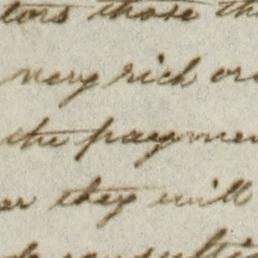 tors those th
very rich or
the paymen
er they will